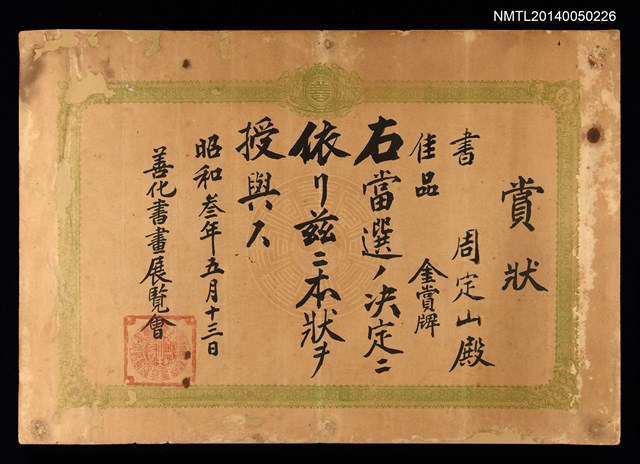 NMTL20140050226
賞狀
書 周定山殿
佳品 金賞牌
右當選ノ決定ニ
依リ茲ニ本狀ヲ
授與ス
昭和叁年五月十三日
善化書畫展覽會